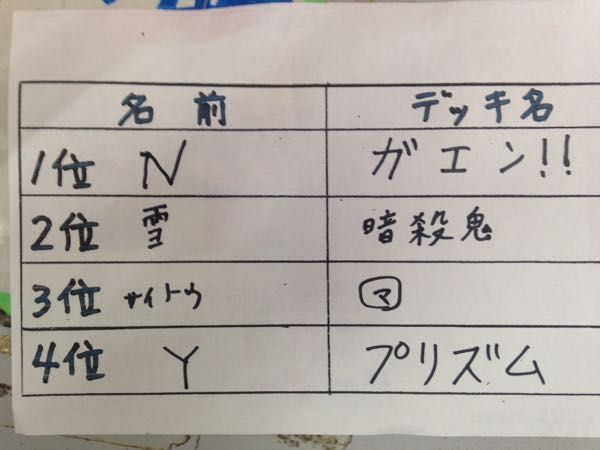 名前 デッキ名
1位 N ガエン!!
2位 雪 暗殺鬼
3位 サイトウ マ
4位 Y プリズム